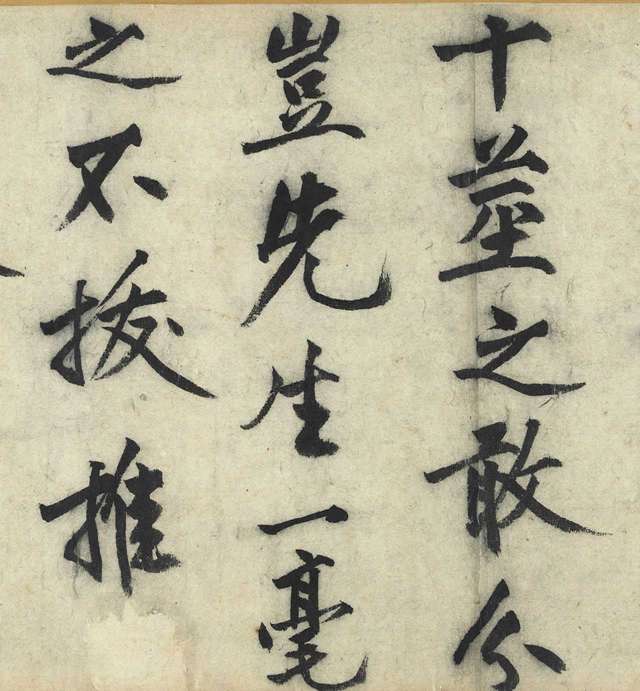 十莖之敢分
豈先生一毫
之不拔推